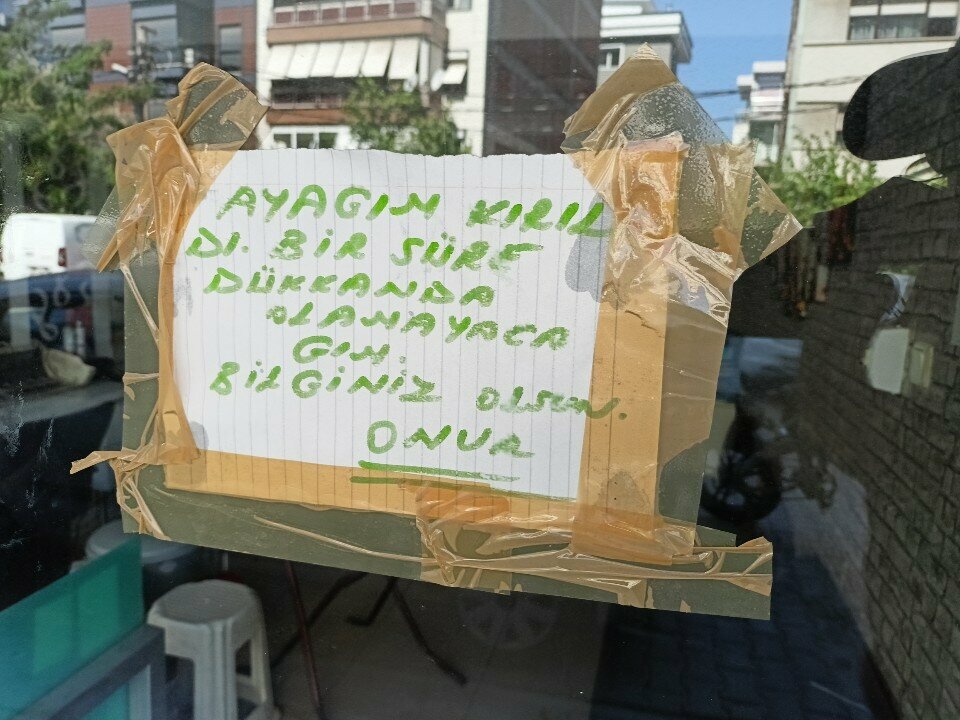 AYAGIM KIRIL
DI. BİR SÜRE
DÜKKANDA
OLAMAYACA
GIM.
BİLGİNİZ OLSUN.
ONUR